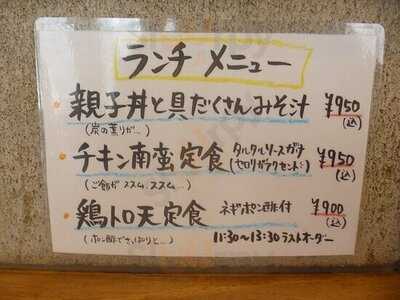 ランチ メニュー
親子丼と具だくさんみそ汁 ¥950
(炭の薫りが…) (込)
チキン南蛮定食 タルタルソースがけ ¥950
(セロリがアクセント!) (込)
(ご飯がススム、ススム…)
鶏トロ天定食 ネギポン酢付 ¥900
(込)
(ポン酢でさっぱりと…) 11:30~13:30ラストオーダー